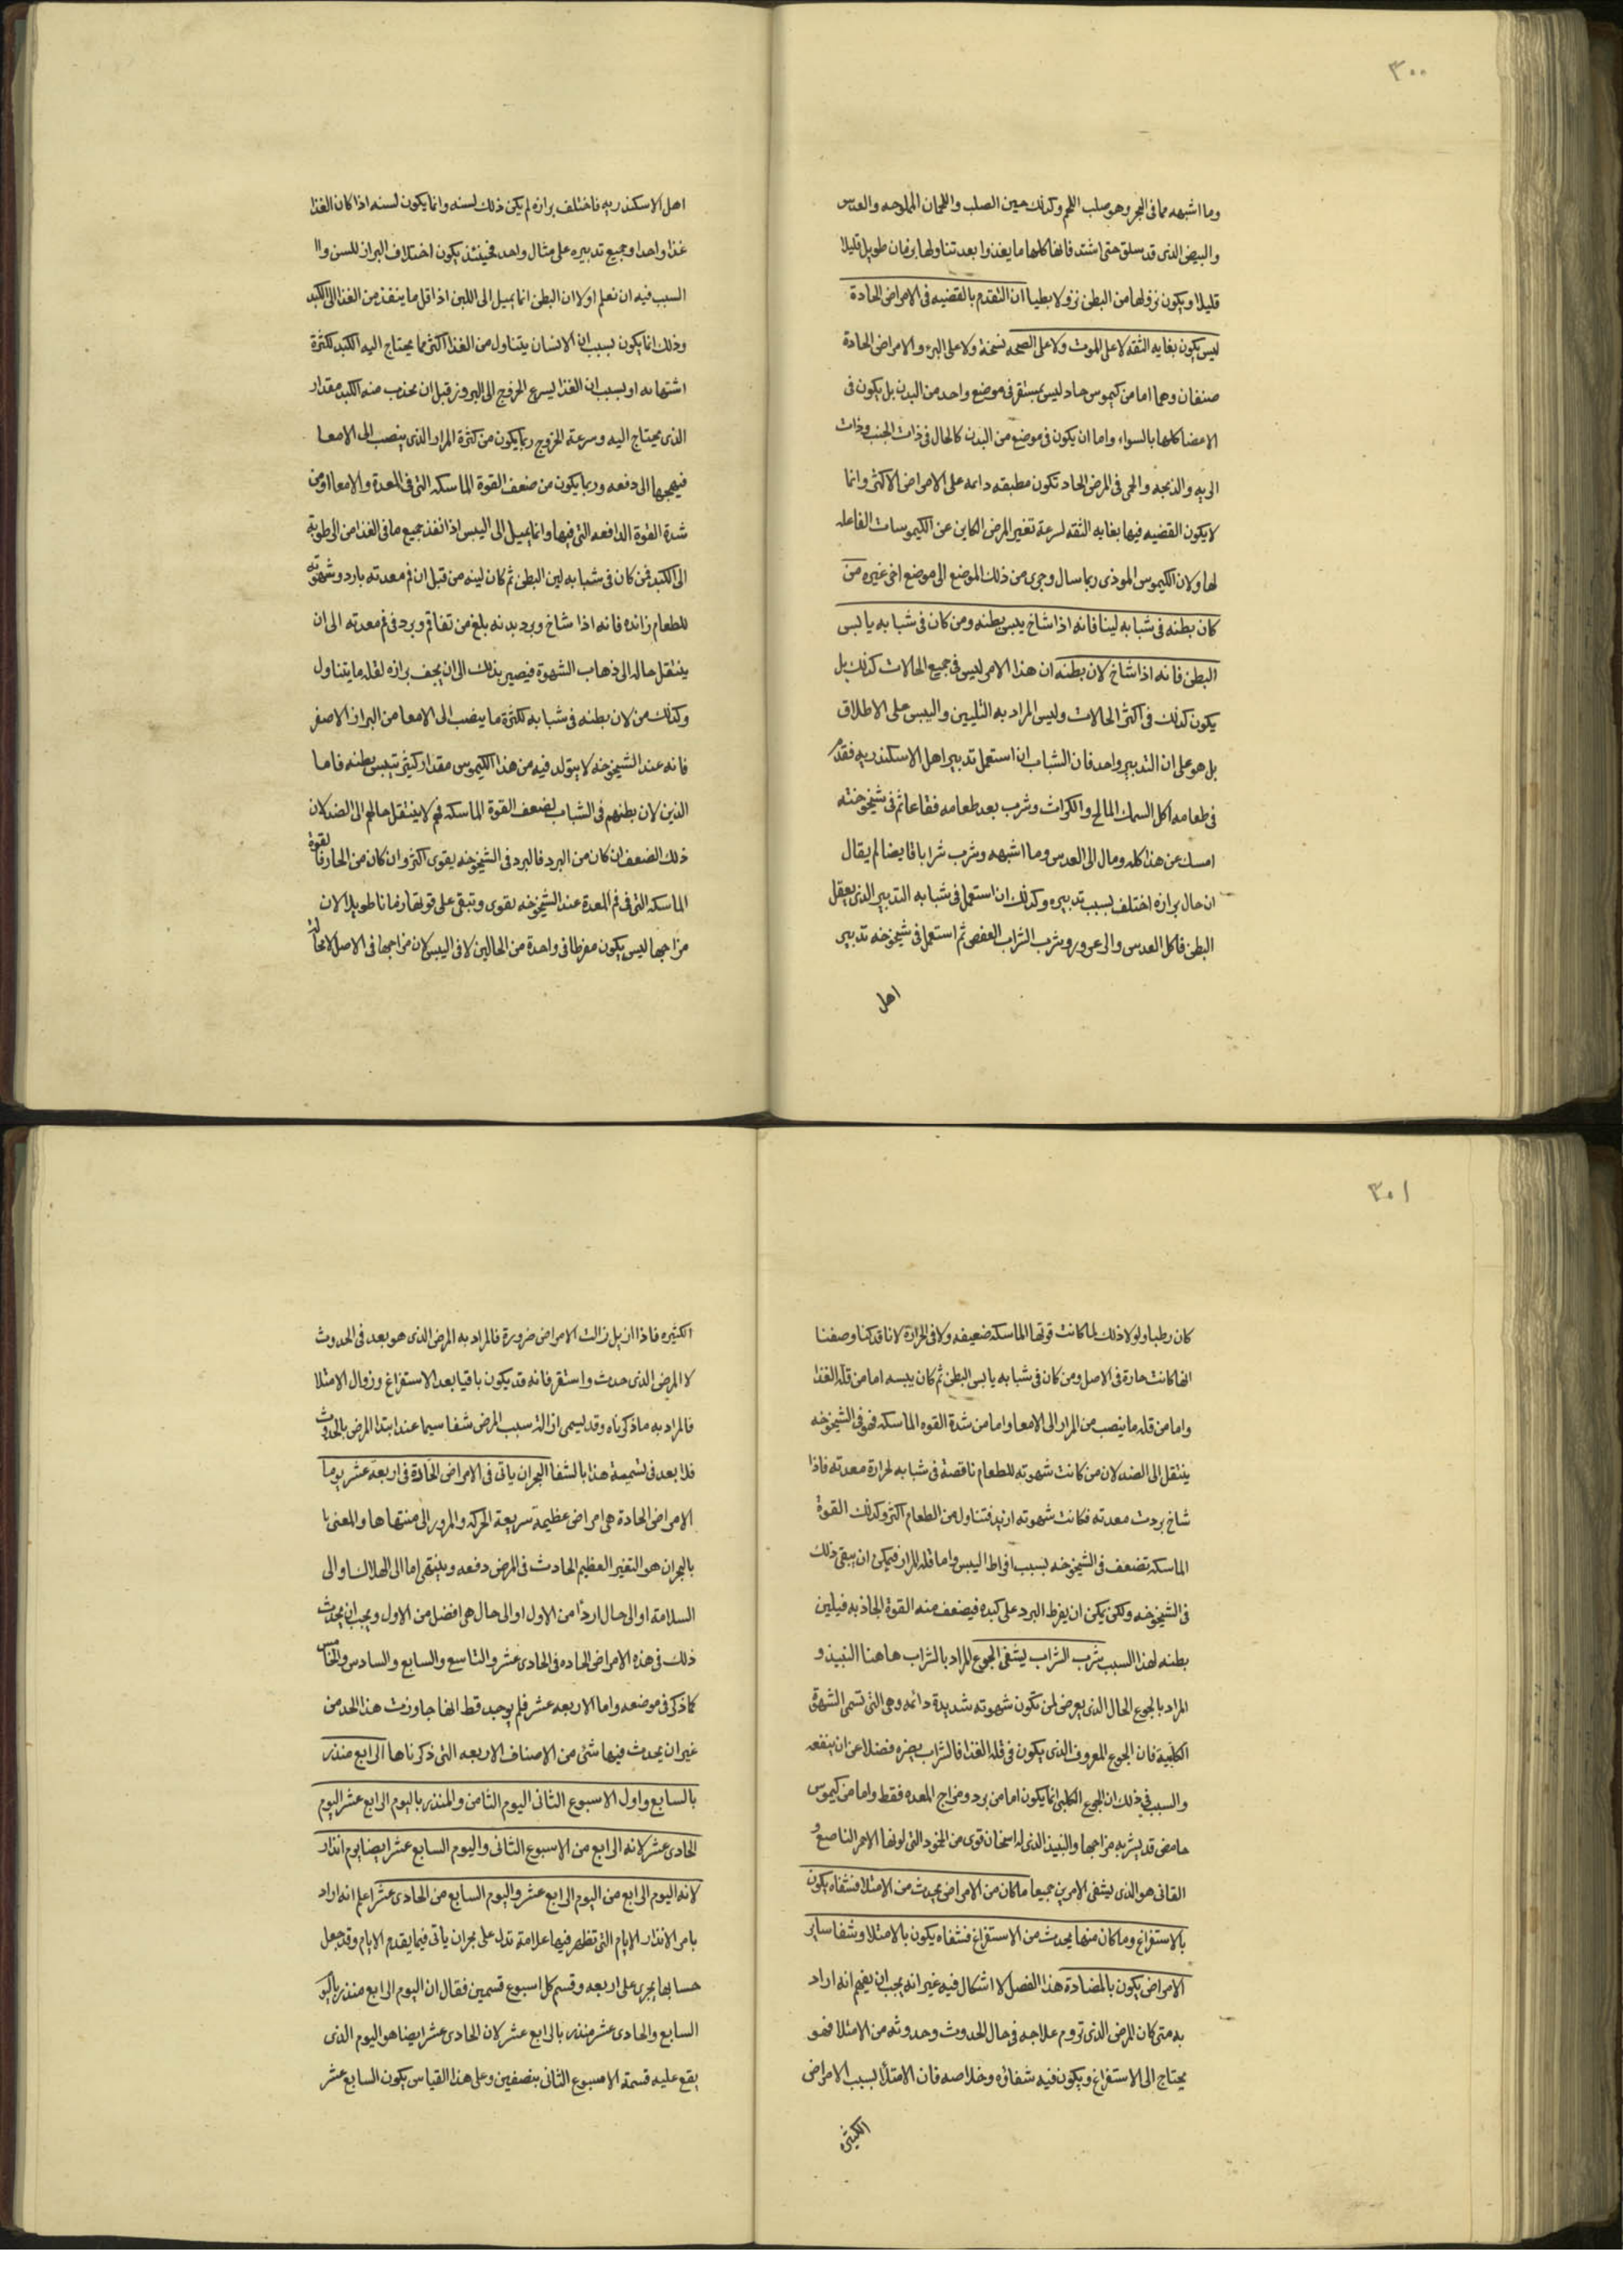 ٣٠٠
وما اشبهه مما فى البحر وهو صلب اللحم وكذلك حين الصلب واللحمان المملوحه والعدس
والبيض الذى قد سلق حتى اشتد فانها كلها ما يغذوا بعد تناولها بزمان طويل قليلا
قليلا ويكون نزولها من البطن نزولا بطيا ان التقدم بالقضيه فى الامراض الحادة
ليس يكون بغايه الثقه لا على الموت ولا على الصحه نسخة ولا على البرء والامراض الحادة
صنفان وهما اما من كيموس حاد ليس بمستقر فى موضع واحد من البدن بل يكون فى
الاعضا كلها بالسواء واما ان يكون فى موضع من البدن كالحال فى ذات الجنب وذات
الريه والذبحه والحمى فى المرض الحاد تكون مطبقه دائمه على الامراض الاكثر وانما
لا يكون القضيه فيها بغايه الثقه لسرعة تغير المرض الكاين عن الكيموسات الفاعله
لها ولان الكيموس الموذى ربما سال وجرى من ذلك الموضع الى موضع اخر غيره من
كان بطنه فى شبابه لينا فانه اذا شاخ يبس بطنه ومن كان فى شبابه يابس
البطن فانه اذا شاخ لان بطنه ان هذا الامر ليس فى جميع الحالات كذلك بل
يكون كذلك فى اكثر الحالات وليس المراد به التليين واليبس على الاطلاق
بل هو على ان التدبير واحد فان الشباب ان استعمل تدبير اهل الاسكندريه فقدم
فى طعامه اكل السمك المالح والكراث وشرب بعد طعامه فقاعا ثم فى شيخوخته
امسك عن هذا كله ومال الى العدس وما اشبهه وشرب شرابا قابضا لم يقال
ان حال برازه اختلف بسبب تدبيره وكذلك ان استعمل فى شبابه التدبير الذى يعقل
البطن فاكل العدس والزعرور وشرب الشراب العفص ثم استعمل فى شيخوخته تدبير
اهل
اهل الاسكندريه فاختلف برازه لم يكن ذلك لسنه وانما يكون لسنه اذا كان الغذا
غذا واحدا وجميع تدبيره على مثال واحد فحينئذ يكون اختلاف البراز للسن وا
السبب فيه ان نعلم اولا ان البطن انما يميل الى اللين اذا قل ما ينفذ من الغذا الى الكبد
وذلك انما يكون بسبب ان الانسان يتناول من الغذا اكثر مما يحتاج اليه الكبد لكثرة
اشتهائه او بسبب ان الغذا يسرع الخروج الى البروز قبل ان يجذب منه الكبد مقدار
الذى يحتاج اليه وسرعة الخروج ربما يكون من كثرة المرار الذى ينصب الى الامعا
فيهيجها الى دفعه وربما يكون من ضعف القوة الماسكه التى فى المعدة والامعا او من
شدة القوة الدافعه التى فيها وانما يميل الى اليبس اذا نفذ جميع ما فى الغذا من الرطوبة
الى الكبد فمن كان فى شبابه لين البطن ثم كان لينه من قبل ان فم معدته بارد وشهوته
للطعام زائده فانه اذا شاخ وبرد بدنه بلغ من تفاقم وبرد فم معدته الى ان
ينتقل حاله الى ذهاب الشهوة فيصير بذلك الى ان يجف برازه لقلة ما يتناول
وكذلك من لان بطنه فى شبابه لكثرة ما ينصب الى الامعا من البراز الاصفر
فانه عند الشيخوخه لا يتولد فيه من هذا الكيموس مقدار كثير يتيبس بطنه فاما
الذين لان بطنهم فى الشباب لضعف القوة الماسكه فهم لا ينتقل حالهم الى الضد لان
ذلك الضعف ان كان من البرد فالبرد فى الشيخوخه يقوى اكثر وان كان من الحار فالقوة
الماسكه التى فى فم المعدة عند الشيخوخه تقوى وتبقى على قوتها زمانا طويلا لان
مزاجها ليس يكون مفرطا فى واحدة من الحالين لا فى اليبس لان مزاجها فى الاصل لا محالة
٣٠١
كان رطبا ولولا ذلك لما كانت قوتها الماسكه ضعيفه ولا فى الحرارة لانا قد كنا وصفنا
انها كانت حارة فى الاصل ومن كان فى شبابه يابس البطن ثم كان يبسه اما من قلة الغذا
واما من قله ما ينصب من المرار الى الامعا واما من شدة القوه الماسكه فهو فى الشيخوخه
ينتقل الى الضد لان من كانت شهوته للطعام ناقصة فى شبابه لحرارة معدته فاذا
شاخ بردت معدته فكانت شهوته ازيد فتناول من الطعام اكثر وكذلك القوة
الماسكه تضعف فى الشيخوخه بسبب افراط اليبس واما قله المرار فيمكن ان يبقى ذلك
فى الشيخوخه ولكن يمكن ان يفرط البرد على كبده فيضعف منه القوة الجاذبه فيلين
بطنه لهذا السبب شرب الشراب يشفى الجوع المراد بالشراب هاهنا النبيذ و
المراد بالجوع الحال الذى يعرض لمن تكون شهوته شديدة دائمه وهى التى تسمى الشهوة
الكلبية فان الجوع المعروف الذى يكون فى قلة الغذا فالشراب يضره فضلا عن ان ينفعه
والسبب فى ذلك ان الجوع الكلبى انما يكون اما من برد ومزاج المعده فقط واما من كيموس
حامض قد يشربه مزاجها والنبيذ الذى له اسخان قوى من الخمود التى لونها الاحمر الناصع و
القانى هو الذى يشفى الامرين جميعا ما كان من الامراض يحدث من الامتلا فشفاه يكون
بالاستفراغ وما كان منها يحدث من الاستفراغ فشفاه يكون بالامتلا وشفا ساير
الامراض يكون بالمضادة هذا الفصل لا اشكال فيه غير انه يجب ان يفهم انه اراد
به متى كان المرض الذى تروم علاجه فى حال الحدوث وحدوثه من الامتلا فهو
يحتاج الى الاستفراغ ويكون فيه شفاؤه وخلاصه فان الامتلا بسبب الامراض
الكثيره
الكثيره فاذا ازيل زالت الامراض ضرورة فالمراد به المرض الذى هو بعد فى الحدوث
لا المرض الذى حدث واستقر فانه قد يكون باقيا بعد الاستفراغ وزوال الامتلا
فالمراد به ما ذكرناه وقد يسمى ازالة سبب المرض شفا سيما عند ابتدا المرض بالحدوث
فلا بعد فى تسمية هذا بالشفا البحران ياتى فى الامراض الحادة فى اربعة عشر يوما
الامراض الحادة هى امراض عظيمة سريعة الحركه والمرور الى منتهاها والمعنى با
بالبحران هو التغير العظيم الحادث فى المرض دفعه وينتهى اما الى الهلاك او الى
السلامة او الى حال اردأ من الاول او الى حال هى افضل من الاول ويجب ان يحدث
ذلك فى هذه الامراض الحاده فى الحادى عشر والتاسع والسابع والسادس والخامس
كما ذكر فى موضعه واما الاربعه عشر فلم يوجد قط انها جاوزت هذا الحد من
غير ان يحدث فيها شئ من الاصناف الاربعه التى ذكرناها الرابع منذر
بالسابع واول الاسبوع الثانى اليوم الثامن والمنذر باليوم الرابع عشر اليوم
الحادى عشر لانه الرابع من الاسبوع الثانى واليوم السابع عشر ايضا يوم انذار
لانه اليوم الرابع من اليوم الرابع عشر واليوم السابع من الحادى عشر اعلم انه اراد
بامر الانذار الايام التى تظهر فيها علامة تدل على بحران ياتى فيما يقدم الايام وقد جعل
حسابها يجرى على اربعه وقسم كل اسبوع قسمين فقال ان اليوم الرابع منذر باليو
السابع والحادى عشر منذر بالرابع عشر لان الحادى عشر ايضا هو اليوم الذى
يقع عليه قسمة الاسبوع الثانى بنصفين وعلى هذا القياس يكون السابع عشر